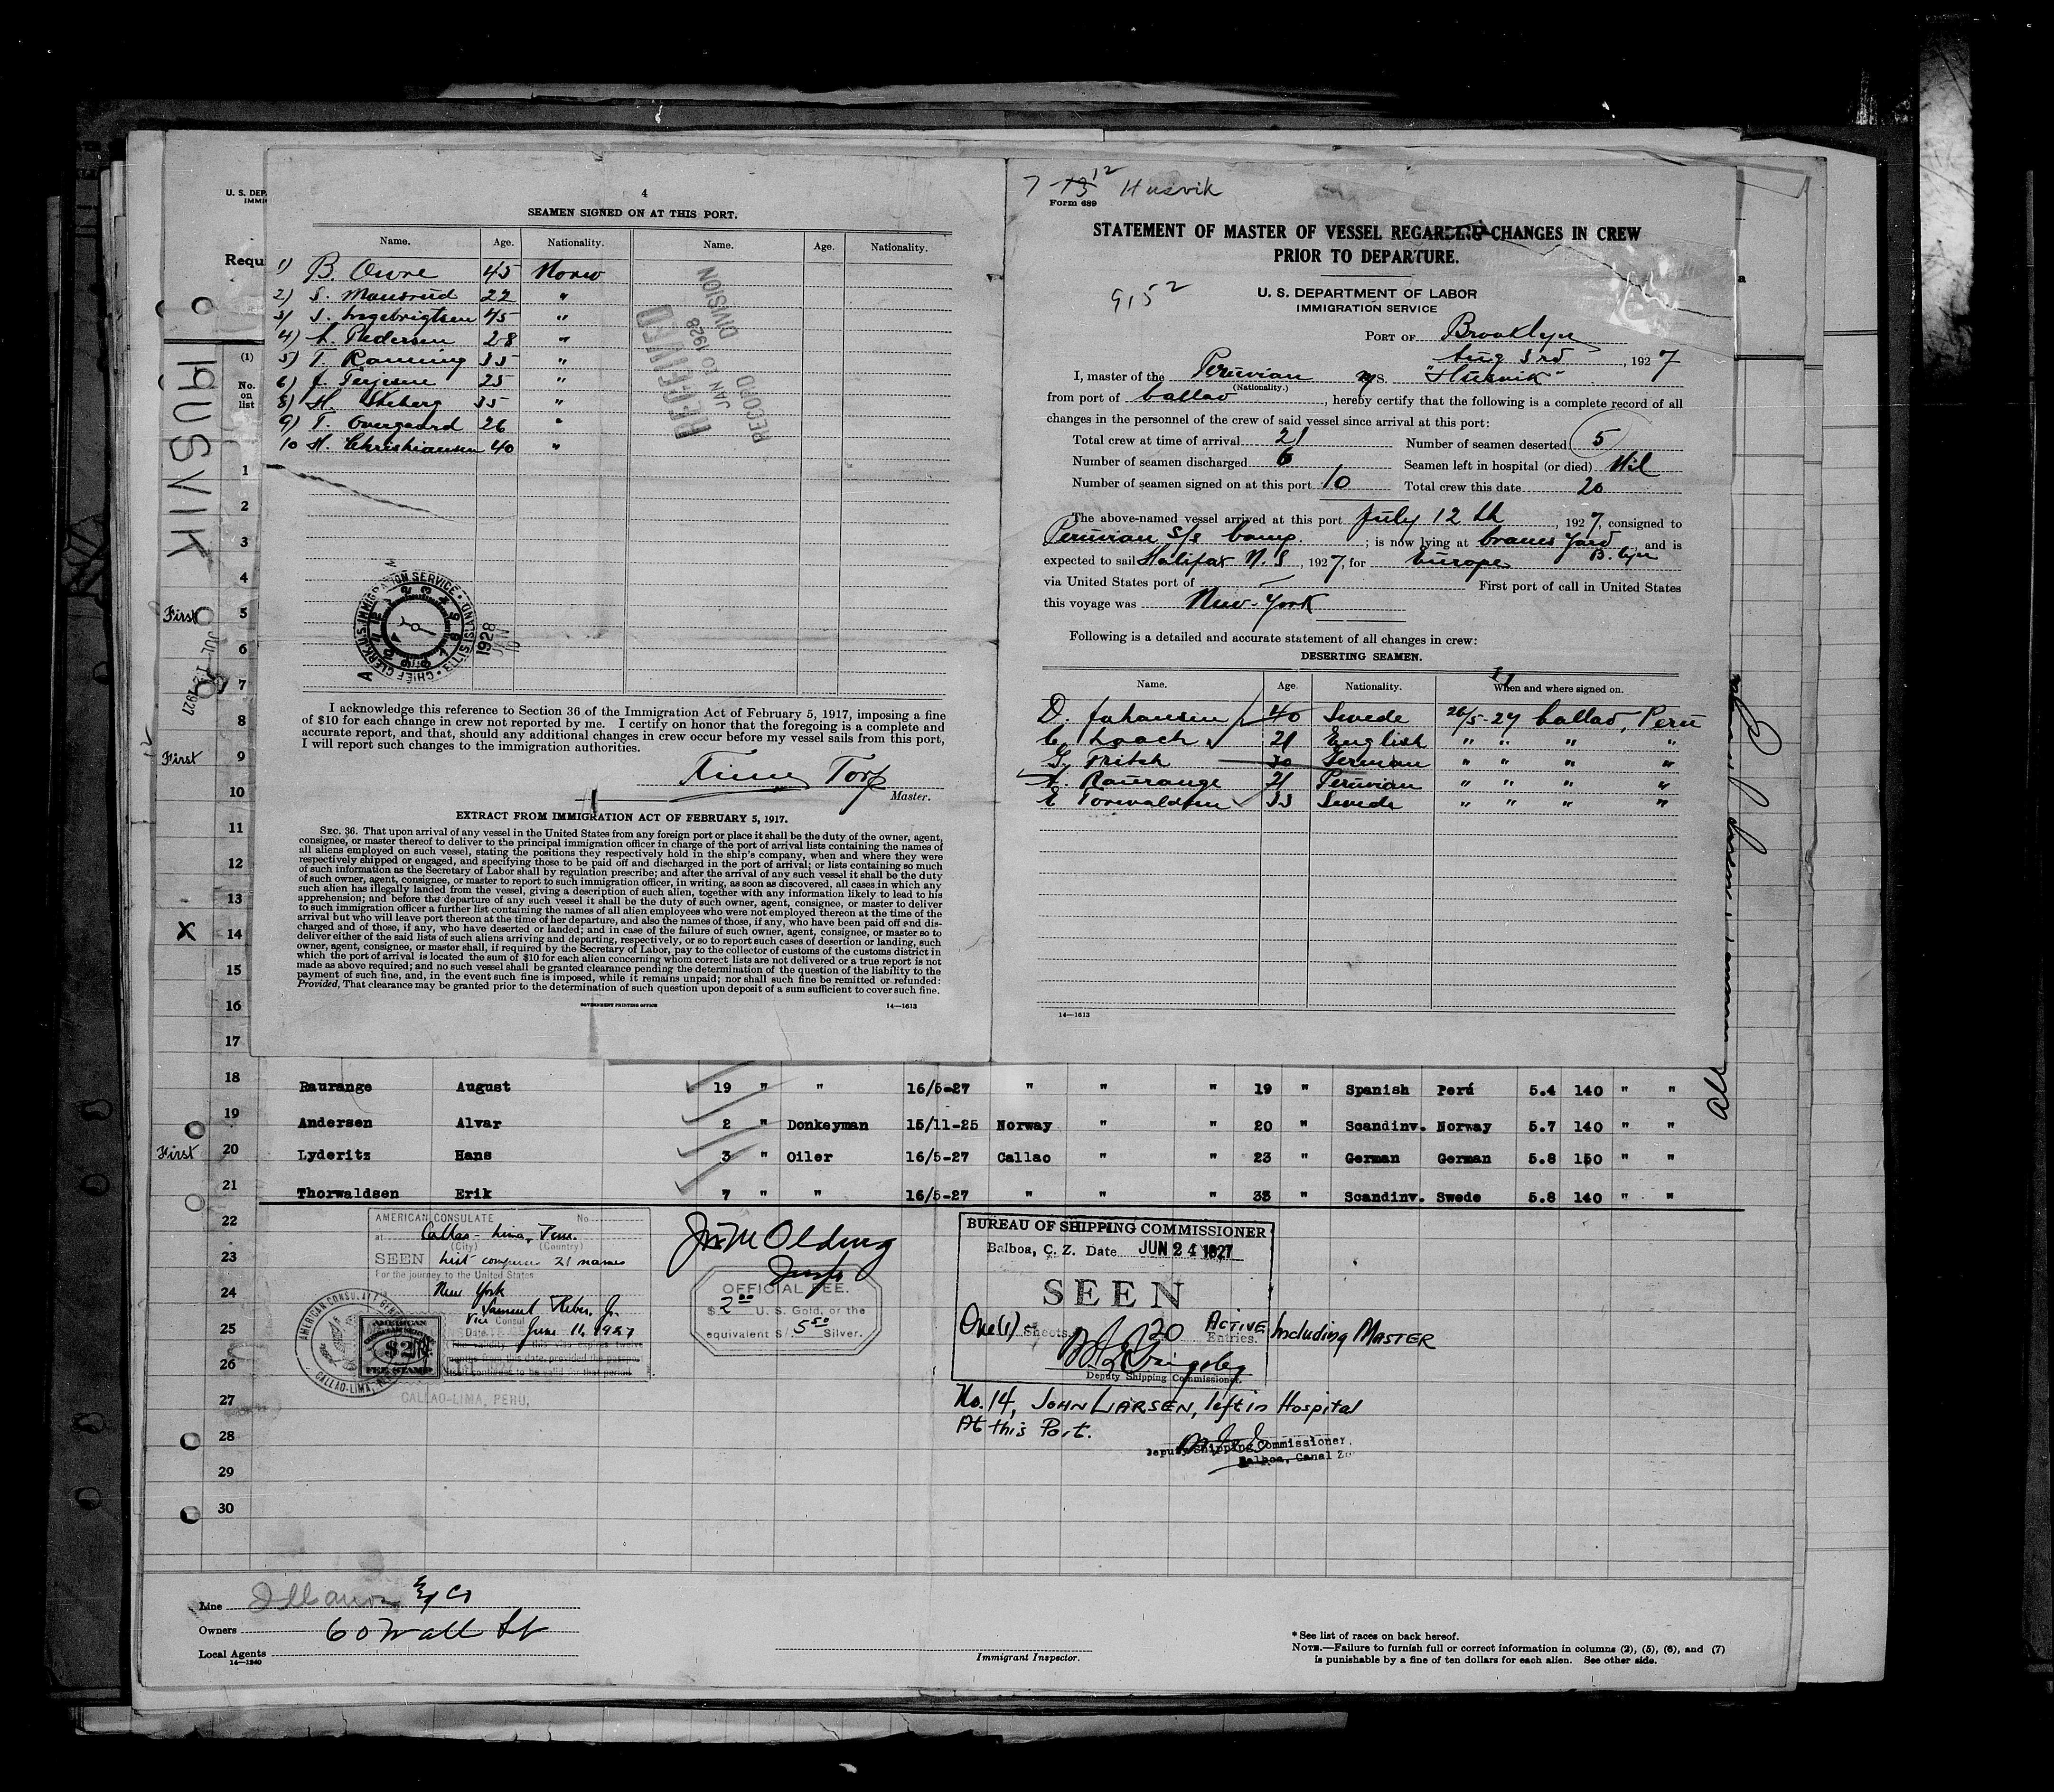 U. S. DEP
IMMI
Requ
4
SEAMEN SIGNED ON AT THIS PORT.
Name. Age. Nationality. Name. Age. Nationality.
1) B. Owre 45 Norw
2) S. Mausrud 22 "
3) S. Ingebrigtsen 45 "
4) A. Pedersen 28 "
5) T. Ranning 35 "
6) J. Terjesen 25 "
8) H. Skiberg 35 "
9) T. Overgaard 26 "
10 H. Christiansen 40 "
RECEIVED
JAN 20 1928
RECORD DIVISION
CHIEF CLERK U.S. IMMIGRATION SERVICE ELLIS ISLAND
1928
JAN
10
I acknowledge this reference to Section 36 of the Immigration Act of February 5, 1917, imposing a fine
of $10 for each change in crew not reported by me. I certify on honor that the foregoing is a complete and
accurate report, and that, should any additional changes in crew occur before my vessel sails from this port,
I will report such changes to the immigration authorities.
Torp
Master.
EXTRACT FROM IMMIGRATION ACT OF FEBRUARY 5, 1917.
SEC. 36. That upon arrival of any vessel in the United States from any foreign port or place it shall be the duty of the owner, agent,
consignee, or master thereof to deliver to the principal immigration officer in charge of the port of arrival lists containing the names of
all aliens employed on such vessel, stating the positions they respectively hold in the ship's company, when and where they were
respectively shipped or engaged, and specifying those to be paid off and discharged in the port of arrival; or lists containing so much
of such information as the Secretary of Labor shall by regulation prescribe; and after the arrival of any such vessel it shall be the duty
of such owner, agent, consignee, or master to report to such immigration officer, in writing, as soon as discovered, all cases in which any
such alien has illegally landed from the vessel, giving a description of such alien, together with any information likely to lead to his
apprehension; and before the departure of any such vessel it shall be the duty of such owner, agent, consignee, or master to deliver
to such immigration officer a further list containing the names of all alien employees who were not employed thereon at the time of the
arrival but who will leave port thereon at the time of her departure, and also the names of those, if any, who have been paid off and dis-
charged and of those, if any, who have deserted or landed; and in case of the failure of such owner, agent, consignee, or master so to
deliver either of the said lists of such aliens arriving and departing, respectively, or so to report such cases of desertion or landing, such
owner, agent, consignee, or master shall, if required by the Secretary of Labor, pay to the collector of customs of the customs district in
which the port of arrival is located the sum of $10 for each alien concerning whom correct lists are not delivered or a true report is not
made as above required; and no such vessel shall be granted clearance pending the determination of the question of the liability to the
payment of such fine, and, in the event such fine is imposed, while it remains unpaid; nor shall such fine be remitted or refunded:
Provided, That clearance may be granted prior to the determination of such question upon deposit of a sum sufficient to cover such fine.
GOVERNMENT PRINTING OFFICE 14—1613
7 13 12 Husvik
Form 689
STATEMENT OF MASTER OF VESSEL REGARDING CHANGES IN CREW
PRIOR TO DEPARTURE.
915 2
U. S. DEPARTMENT OF LABOR
IMMIGRATION SERVICE
PORT OF Brooklyn
Aug 3rd, 1927
I, master of the Peruvian M/S. "Husvik"
(Nationality.)
from port of Callao, hereby certify that the following is a complete record of all
changes in the personnel of the crew of said vessel since arrival at this port:
Total crew at time of arrival 21 Number of seamen deserted 5
Number of seamen discharged 6 Seamen left in hospital (or died) Nil
Number of seamen signed on at this port 10 Total crew this date 20
The above-named vessel arrived at this port July 12th, 1927, consigned to
Peruvian S/S Comp.; is now lying at Cranes Yard B.lyn and is
expected to sail Halifax N.S, 1927, for Europe
via United States port of — First port of call in United States
this voyage was New-York
Following is a detailed and accurate statement of all changes in crew:
DESERTING SEAMEN.
Name. Age. Nationality. When and where signed on.
D. Johansen 40 Swede 26/5-27 Callao, Peru
C. Loach 21 English " " " "
G. Fritsh 30 German " " " "
A. Raurange 21 Peruvian " " " "
E Torwaldsen 33 Swede " " " "
14—1613
HUSVIK
JUL 12 1927
First
First
X
First
(1)
No.
on
list
1
2
3
4
5
6
7
8
9
10
11
12
13
14
15
16
17
18 Raurange August 19 " " 16/5-27 " " " 19 " Spanish Perú 5.4 140 " "
19 Andersen Alvar 2 " Donkeyman 15/11-25 Norway " " 20 " Scandinv. Norway 5.7 140 " "
20 Lyderitz Hans 3 " Oiler 16/5-27 Callao " " 23 " German German 5.8 150 " "
21 Thorwaldsen Erik 7 " " 16/5-27 " " " 33 " Scandinv. Swede 5.8 140 " "
22
23
24
25
26
27
28
29
30
AMERICAN CONSULATE No
at Callao-Lima, Peru.
(City) (Country)
SEEN List comprises 21 names
For the journey to the United States
New York
Samuel Reber, Jr.
Vice Consul
Date: June 11, 1927
The validity of this visa expires twelve
months from this date, provided the passport
itself continues to be valid for that period.
AMERICAN CONSULATE GENERAL
CALLAO-LIMA, PERU
AMERICAN
CONSULAR SERVICE
$2
FEE STAMP
CALLAO-LIMA, PERU.
Jas M Olding
Insp
OFFICIAL FEE.
$ 2 00 U. S. Gold, or the
equivalent S/ 5 50 Silver.
BUREAU OF SHIPPING COMMISSIONER
Balboa, C. Z. Date JUN 24 1927
SEEN
One (1) Sheets, 20 Active Entries. Including Master
Grigsby
Deputy Shipping Commissioner.
No. 14, John Larsen, left in Hospital
At this Port.
Deputy Shipping Commissioner,
Balboa, Canal Zo
Line
Owners 60 Wall St
Local Agents
14—1240
Immigrant Inspector.
* See list of races on back hereof.
NOTE.—Failure to furnish full or correct information in columns (2), (5), (6), and (7)
is punishable by a fine of ten dollars for each alien. See other side.